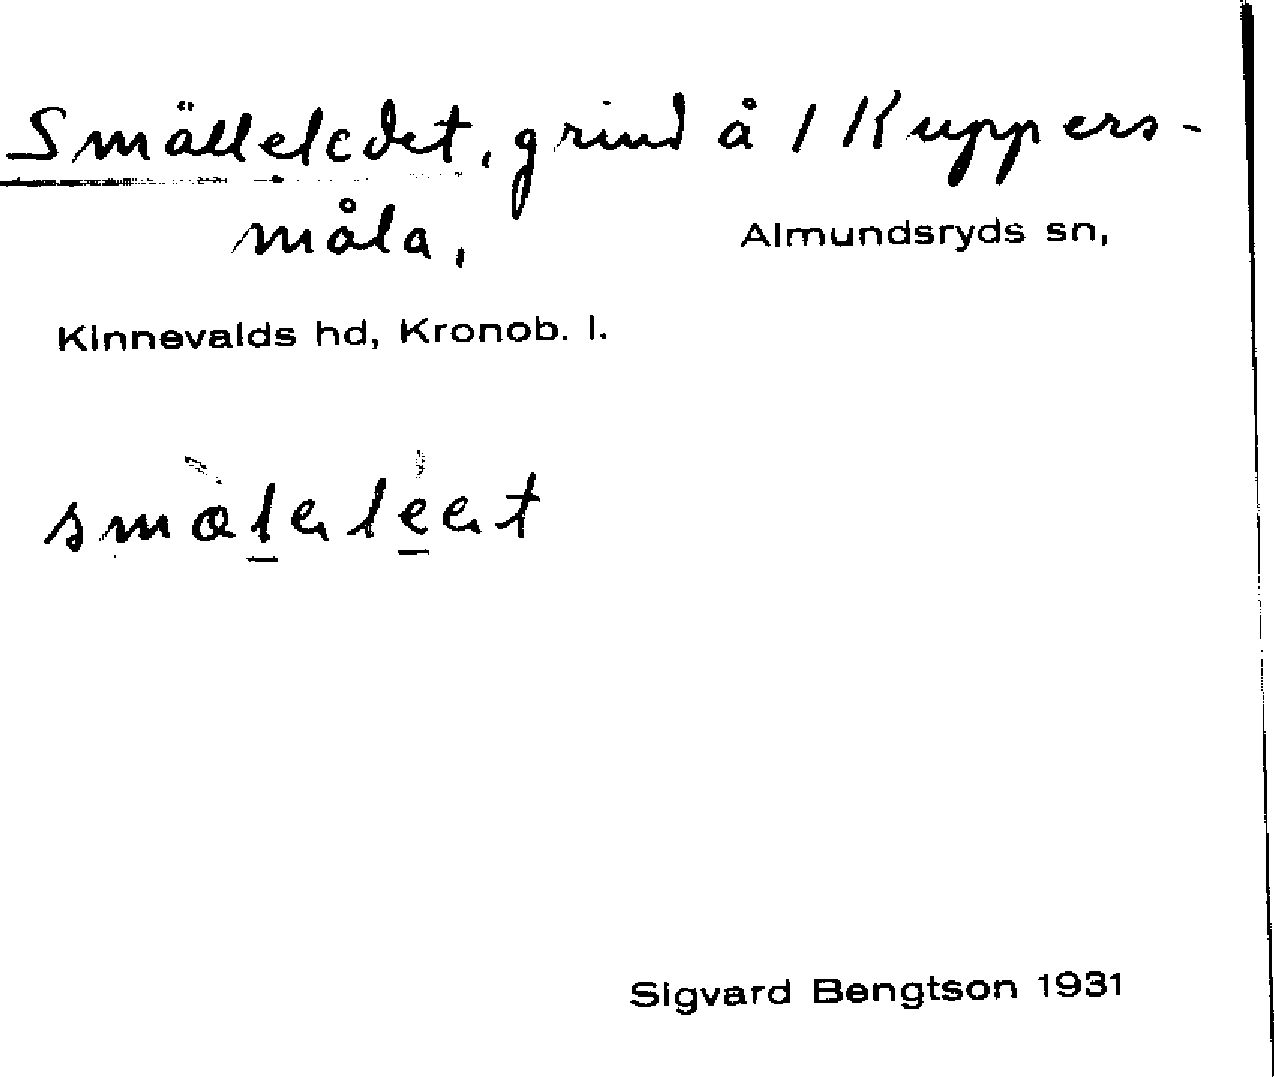 Smälleledet, grind å 1 Kuppers-
måla, Almundsryds sn,
Kinnevalds hd, Kronob. l.
Sigvard Bengtson 1931